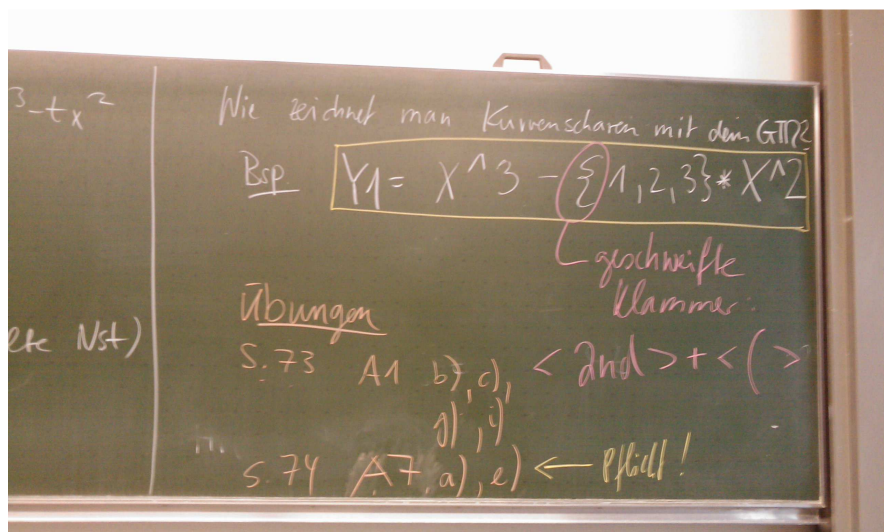 ³-tx²
Wie zeichnet man Kurvenscharen mit dem GTR?
Bsp Y1= X^3 - {1,2,3}* X^2
geschweifte
Klammer:
<2nd>+<(>
lte Nst)
Übungen
S.73 A1 b),c),
g),i)
S.74 A7 a),e) ← Pflicht!